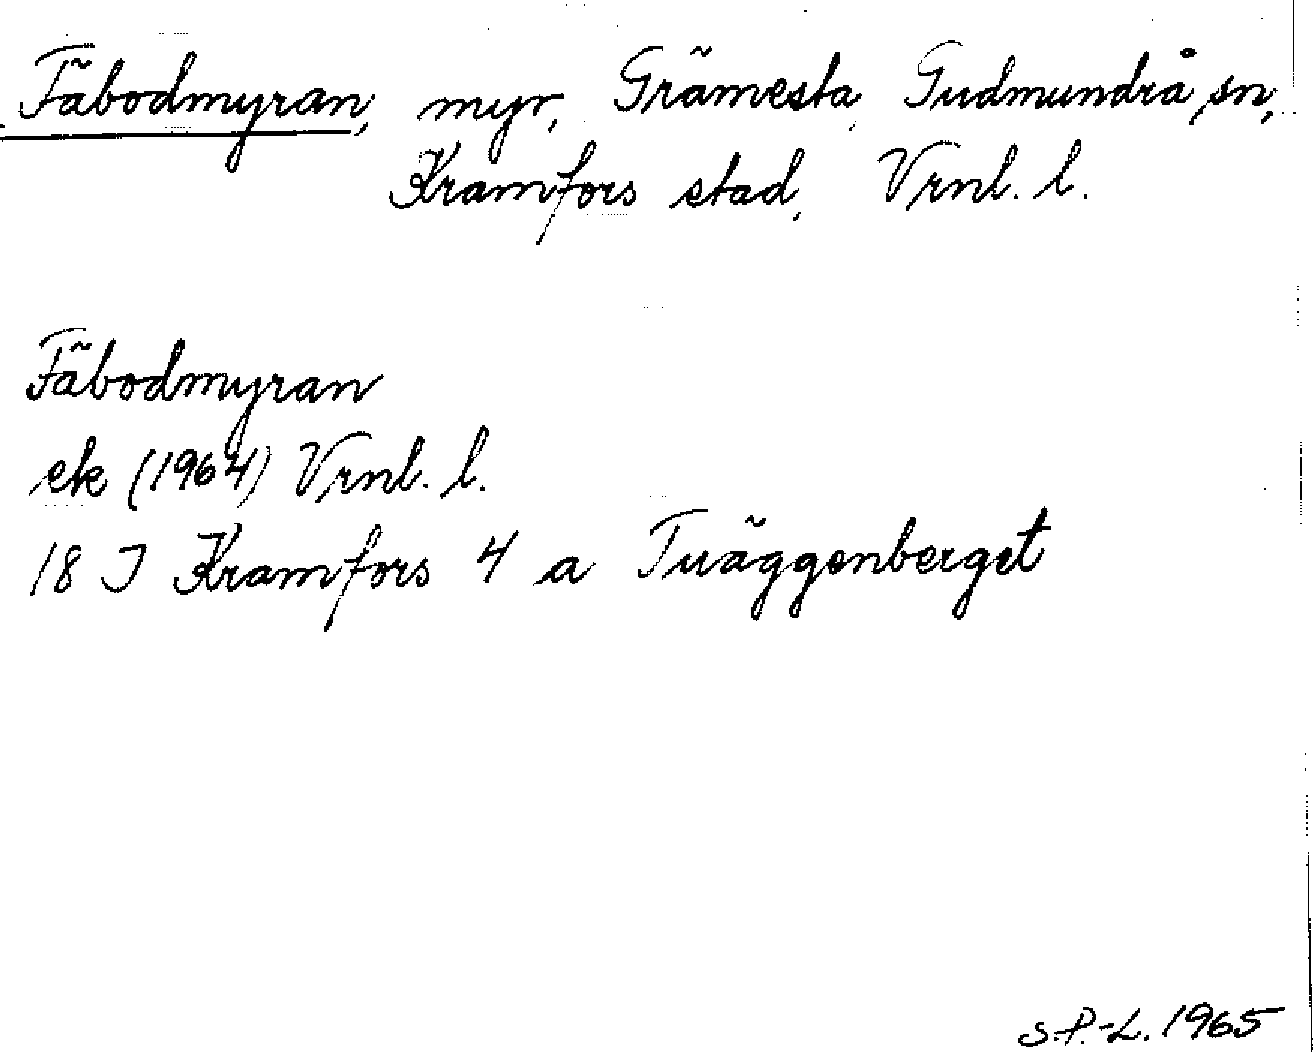 Fäbodmyran, myr, Grämesta, Gudmundrå sn,
Kramfors stad, Vrnl. l.
Fäbodmyran
ek (1964) Vrnl. l.
18 I Kramfors 4 a Tväggenberget
S.P.-L. 1965